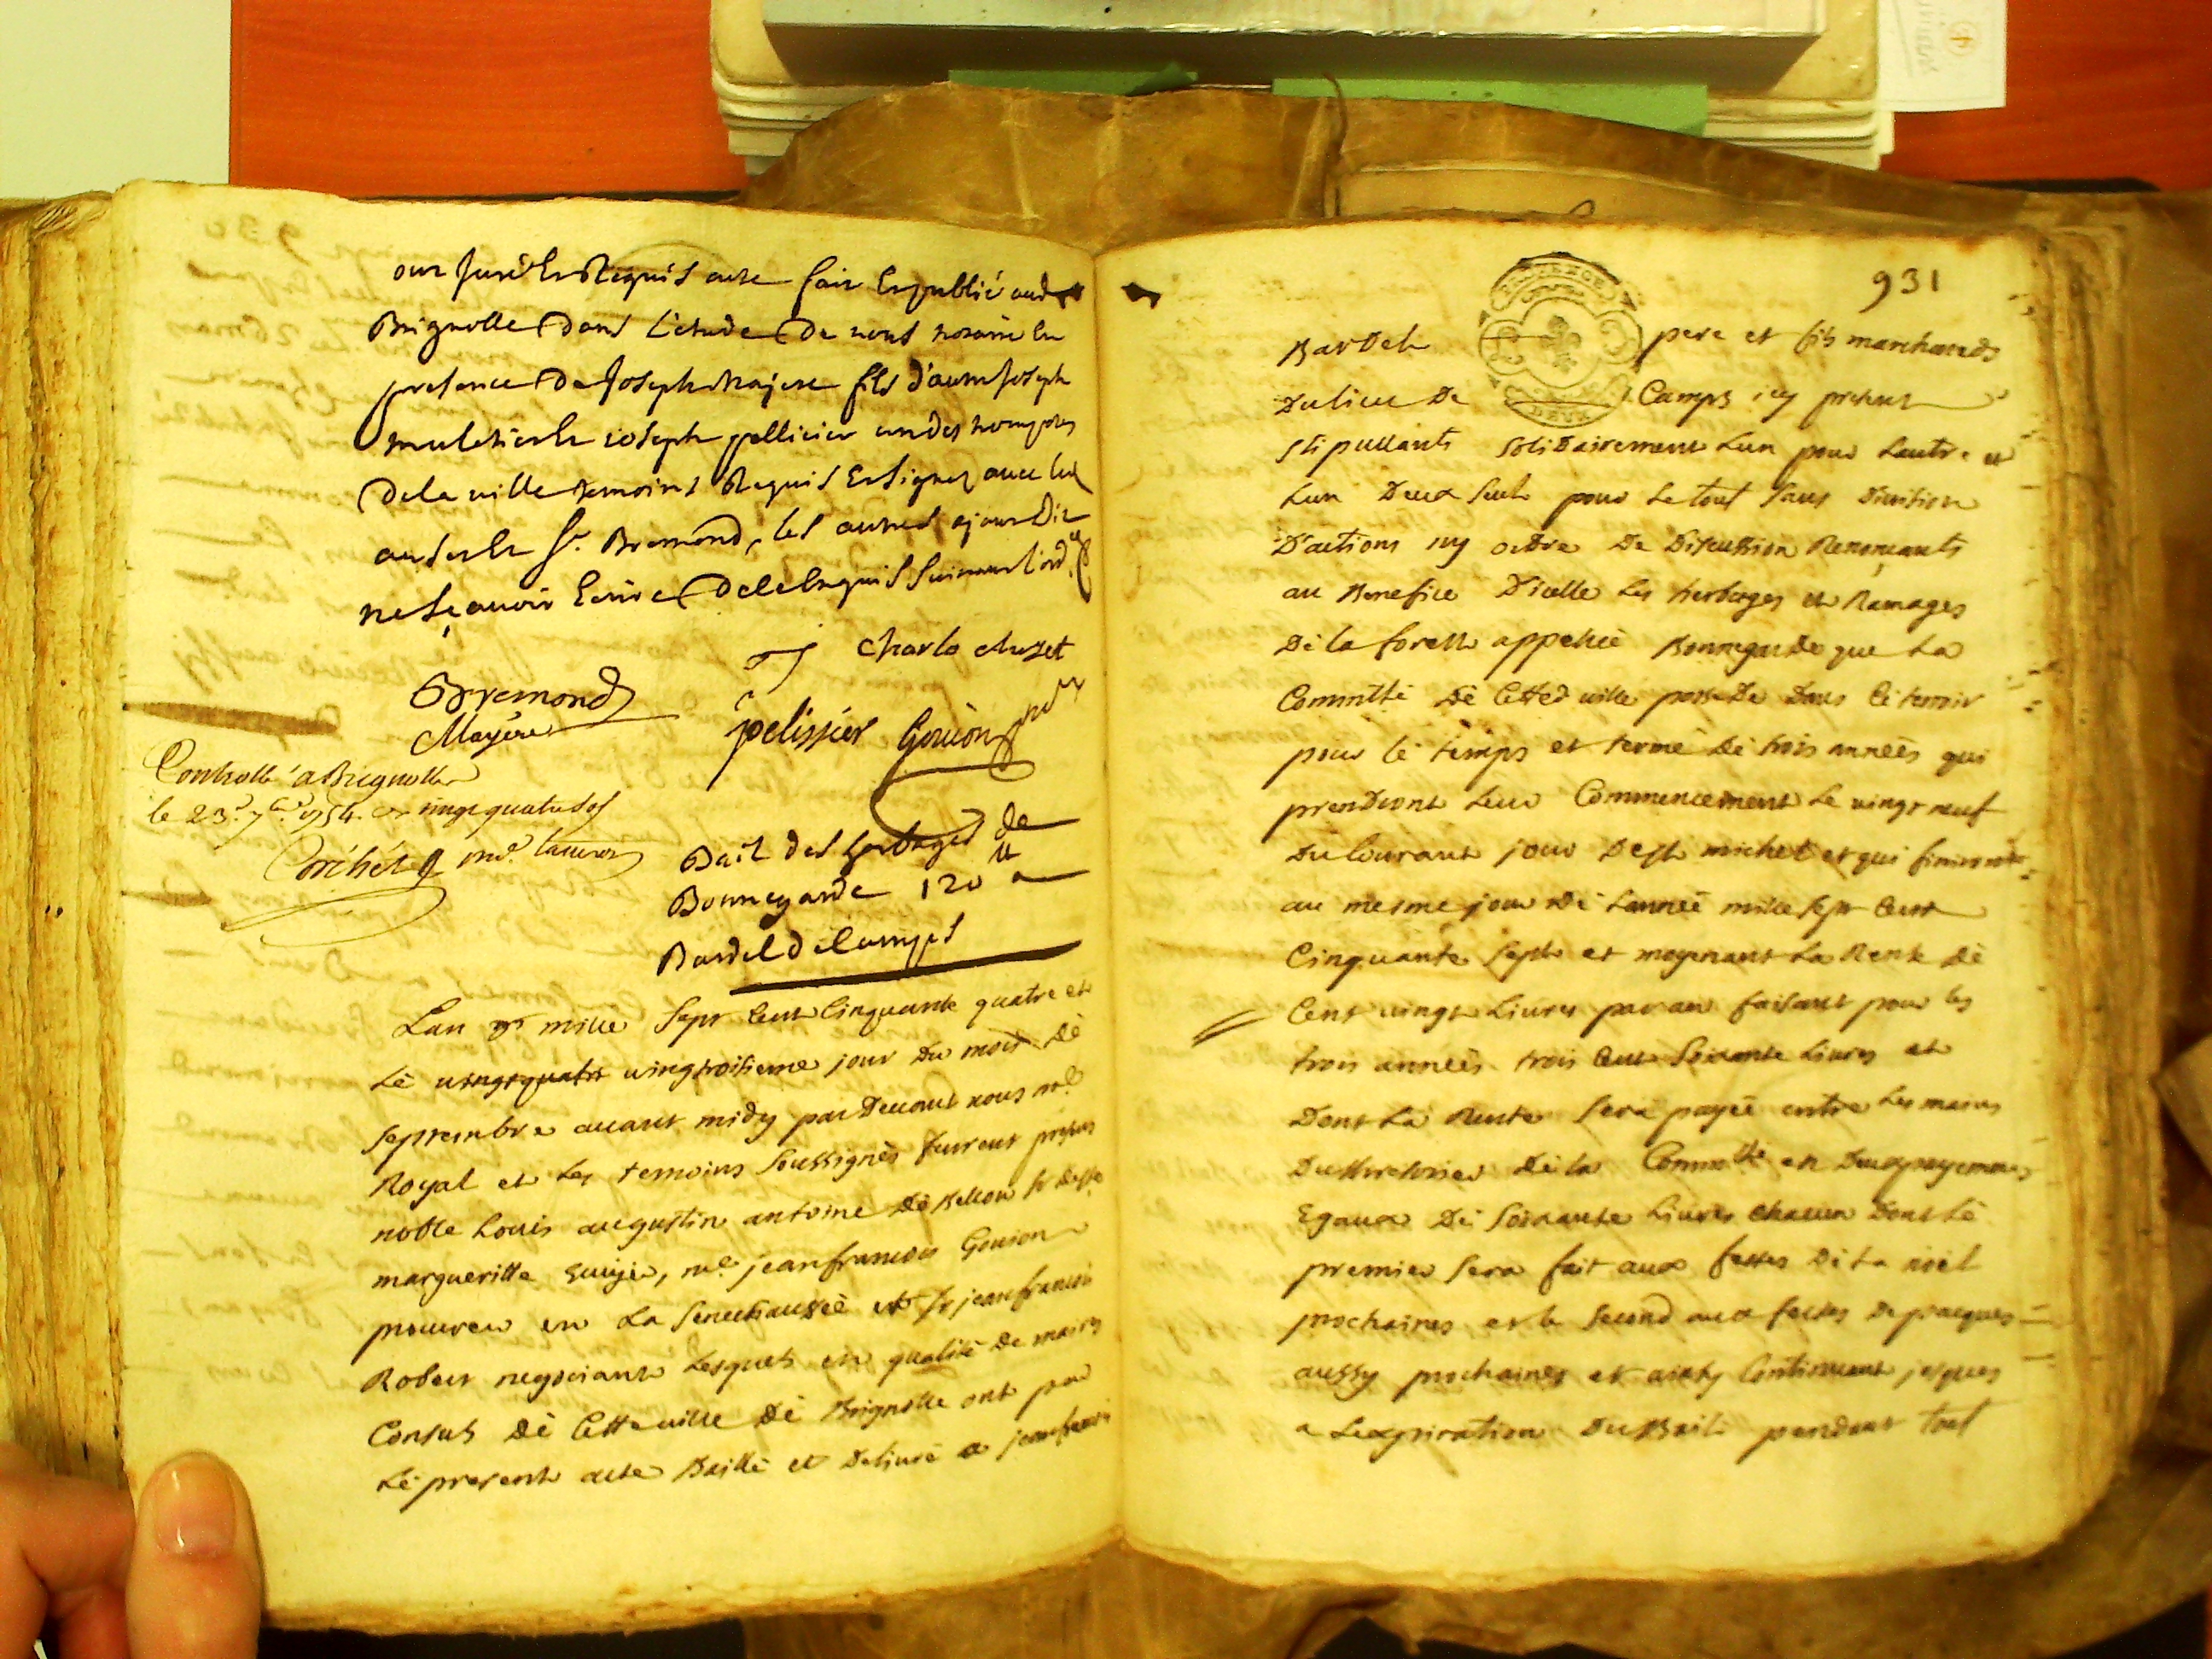 ont juré Et Requis acte fait Et publié aud
Brignolle Dans L'etude De nous notaire En
presence De Joseph Majere fils d'autre Joseph
muletier Et joseph pellicier un des trompetes
De la ville temoins Requis Et signez avec led
Sr. Bremond, les autres ajant Dit
ne sçavoir Ecrire De ce Enquis suivant l'ord.
Charle chuzet
Bremond
Mayére
pelissier Gouion
Controllé a Brignolle
le 23e 7bre 1754. vingt quatre sols
Bail des herbages de
Bonnegarde 120 ₶
Bardel de Camps
Lan mille Sept Cent Cinquante quatre et
Lé vingtquatre vingtroisieme jour Du mois Dé
Septembre avant midy par Devant nous no.e
Royal et Les temoins Soussignés furent presens
noble Louis augustin antoine Dé Bellon Sr de Ste
margueritte Ecuyer, me. jean francois Gouion
procureur en La Senechaussée et Sr jean francois
Robert negociant Lesquels en qualité De maires
Consuls Dé Cette ville Dé Brignolle ont par
Lé present acte Baillé et Delivré a jean francois
931
Bardel pere et fils marchands
Du lieu De Camps icy present
Stipullants Solidairement Lun pour Lautre et
Lun Deux Seul pour Le tout Sans Division
D'actions ny ordre De Discussion Renoncants
au Benefice D'icelle Les herbages et Ramages
Dé la forest appellée Bonnegarde que La
Commté Dé Cette ville possede Dans Lé terroir
pour lé temps et terme Dé trois années qui
prendront Leur Commencement Le vingt neuf
Du Courant jour De St michel et qui finiront
au mesme jour Dé Lannée mille Sept Cent
Cinquante Sept et moyenant La Rente Dé
Cent vingt Livres par an faisant pour les
trois années trois Cent Soixante Livres et
Dont La Rente Sera payée entre Les mains
Du thresorier Dé la Commté en Deux payements
Egaux Dé Soixante Livres chacun Dont Lé
premier Sera fait aux festes Dé La noel
prochaines et le Second aux festes De pacques
aussy prochaines et ainsy Continuant jusques
a Lexpiration Du Bail pendant tout